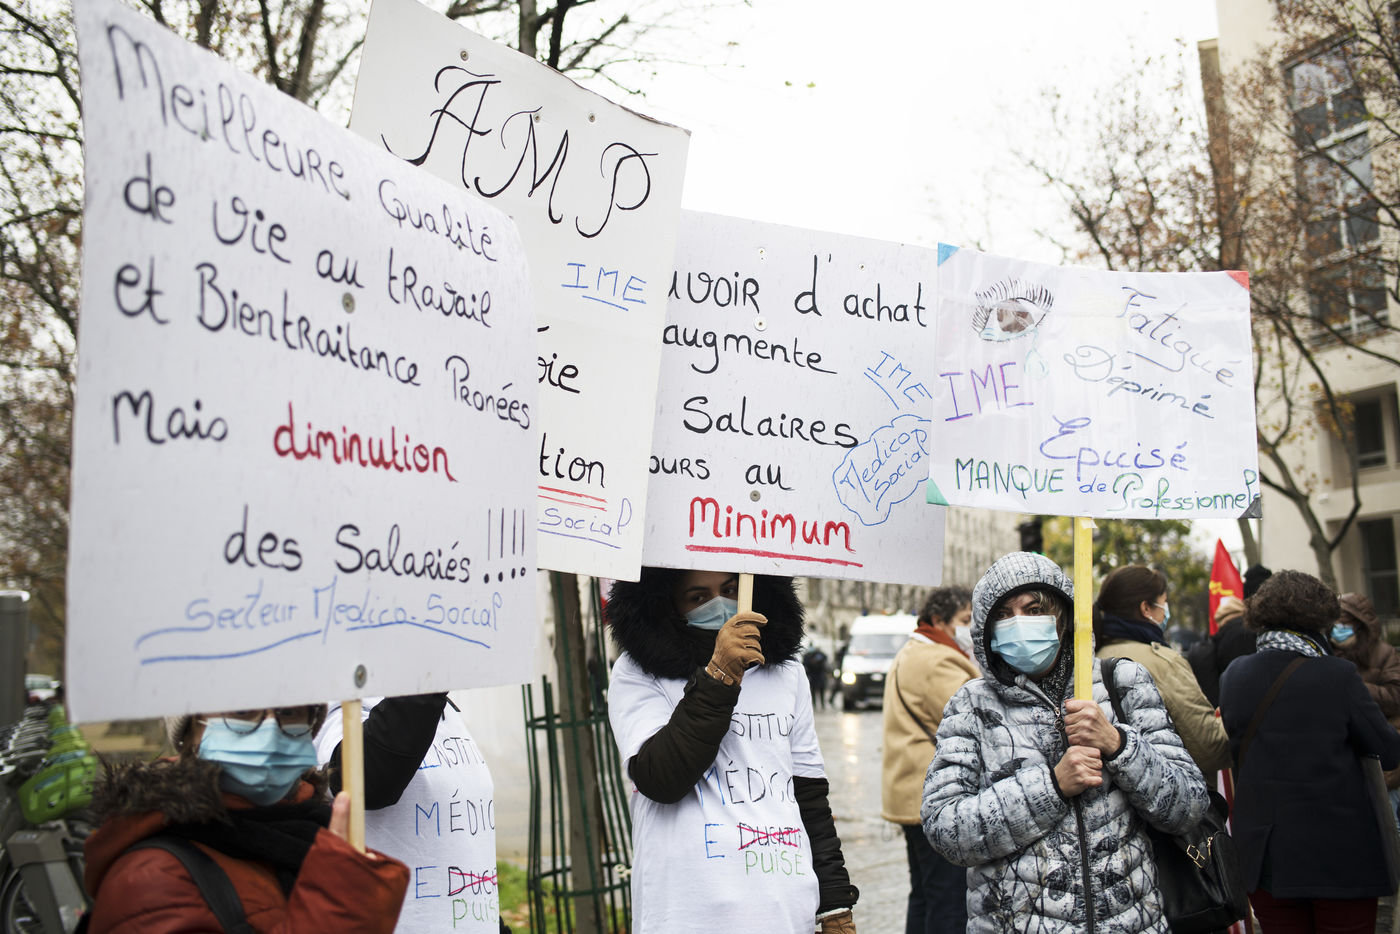 Meilleure Qualité
de vie au travail
et Bientraitance Pronées
Mais diminution
des Salariés !!!!
Secteur Medico-Social
AMP
IME
vie
tion
Social
uvoir d'achat
augmente
IME
Salaires
Medico
Social
ours au
Minimum
Fatigué
IME
Déprimé
Epuisé
MANQUE de Professionnels
INSTITU
MÉDIC
E DUC
PUIS
NSTITU
MÉDIC
E DUCATI
PUISÉ